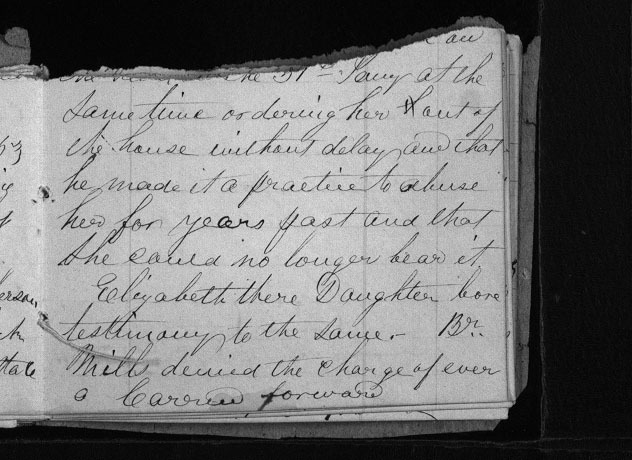 the 31st Jany at the
same time ordering her out of
the house without delay and that
he made it a practice to abuse
her for years past and that
she could no longer bear it
Elizabeth there Daughter bore
testimony to the same.- Br.
Mills denied the charge of ever
a Carried forward